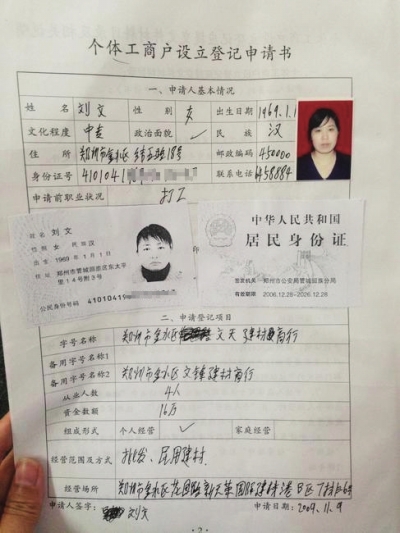 个体工商户设立登记申请书
一、申请人基本情况
姓名 刘文 性别 女 出生日期 1969.1.1
文化程度 中专 政治面貌 民族 汉
住所 郑州市金水区 18号 邮政编码 450000
身份证号 41010419 联系电话 6458884
申请前职业状况 打工
姓名 刘文
性别 女 民族 汉
出生 1969年1月1日
住址 郑州市管城回族区东太平
里14号附3号
公民身份号码 41010419
中华人民共和国
居民身份证
签发机关 郑州市公安局管城回族分局
有效期限 2006.12.28-2026.12.28
二、申请登记项目
字号名称 郑州市金水区 文天 建材商行
备用字号名称1
备用字号名称2 郑州市金水区文锋建材商行
从业人数 4人
资金数额 16万
组成形式 个人经营 ✓ 家庭经营
经营范围及方式 批发、民用建材
经营场所 郑州市金水区花园路新天荣国际建材港B区7栋
申请人签字: 刘文 申请日期: 2009.11.9